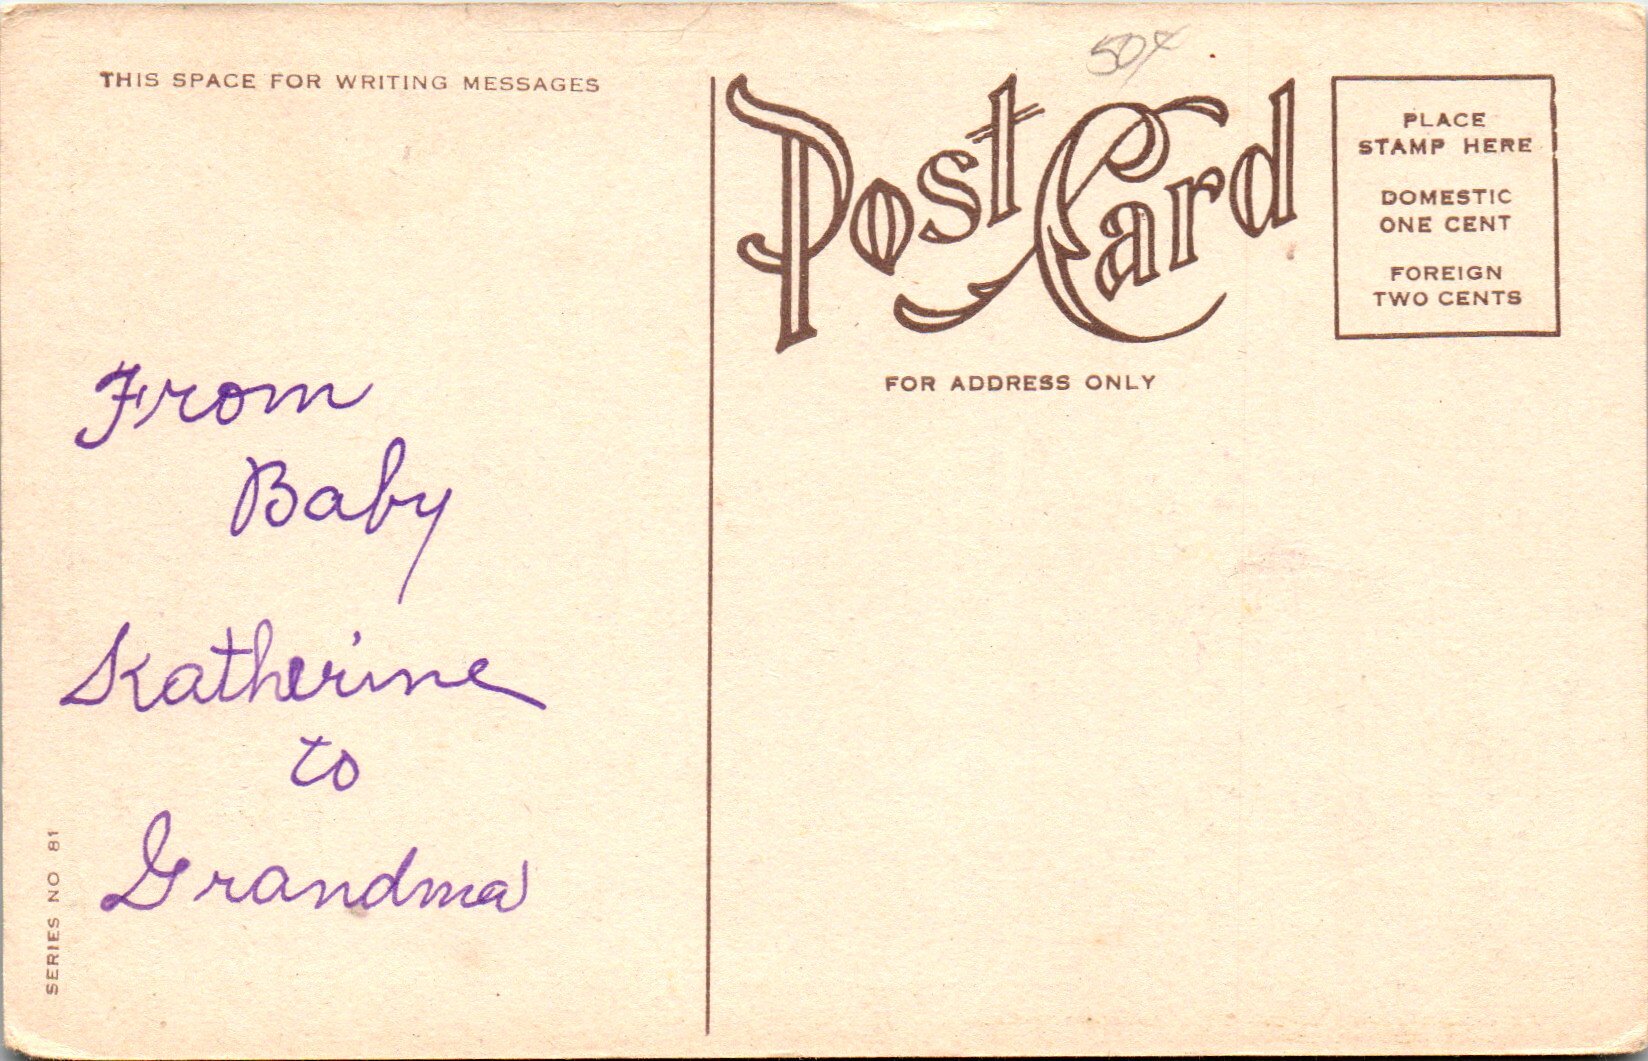 THIS SPACE FOR WRITING MESSAGES
From
Baby
Katherine
to
Grandma
SERIES NO 81
50¢
Post Card
FOR ADDRESS ONLY
PLACE
STAMP HERE
DOMESTIC
ONE CENT
FOREIGN
TWO CENTS